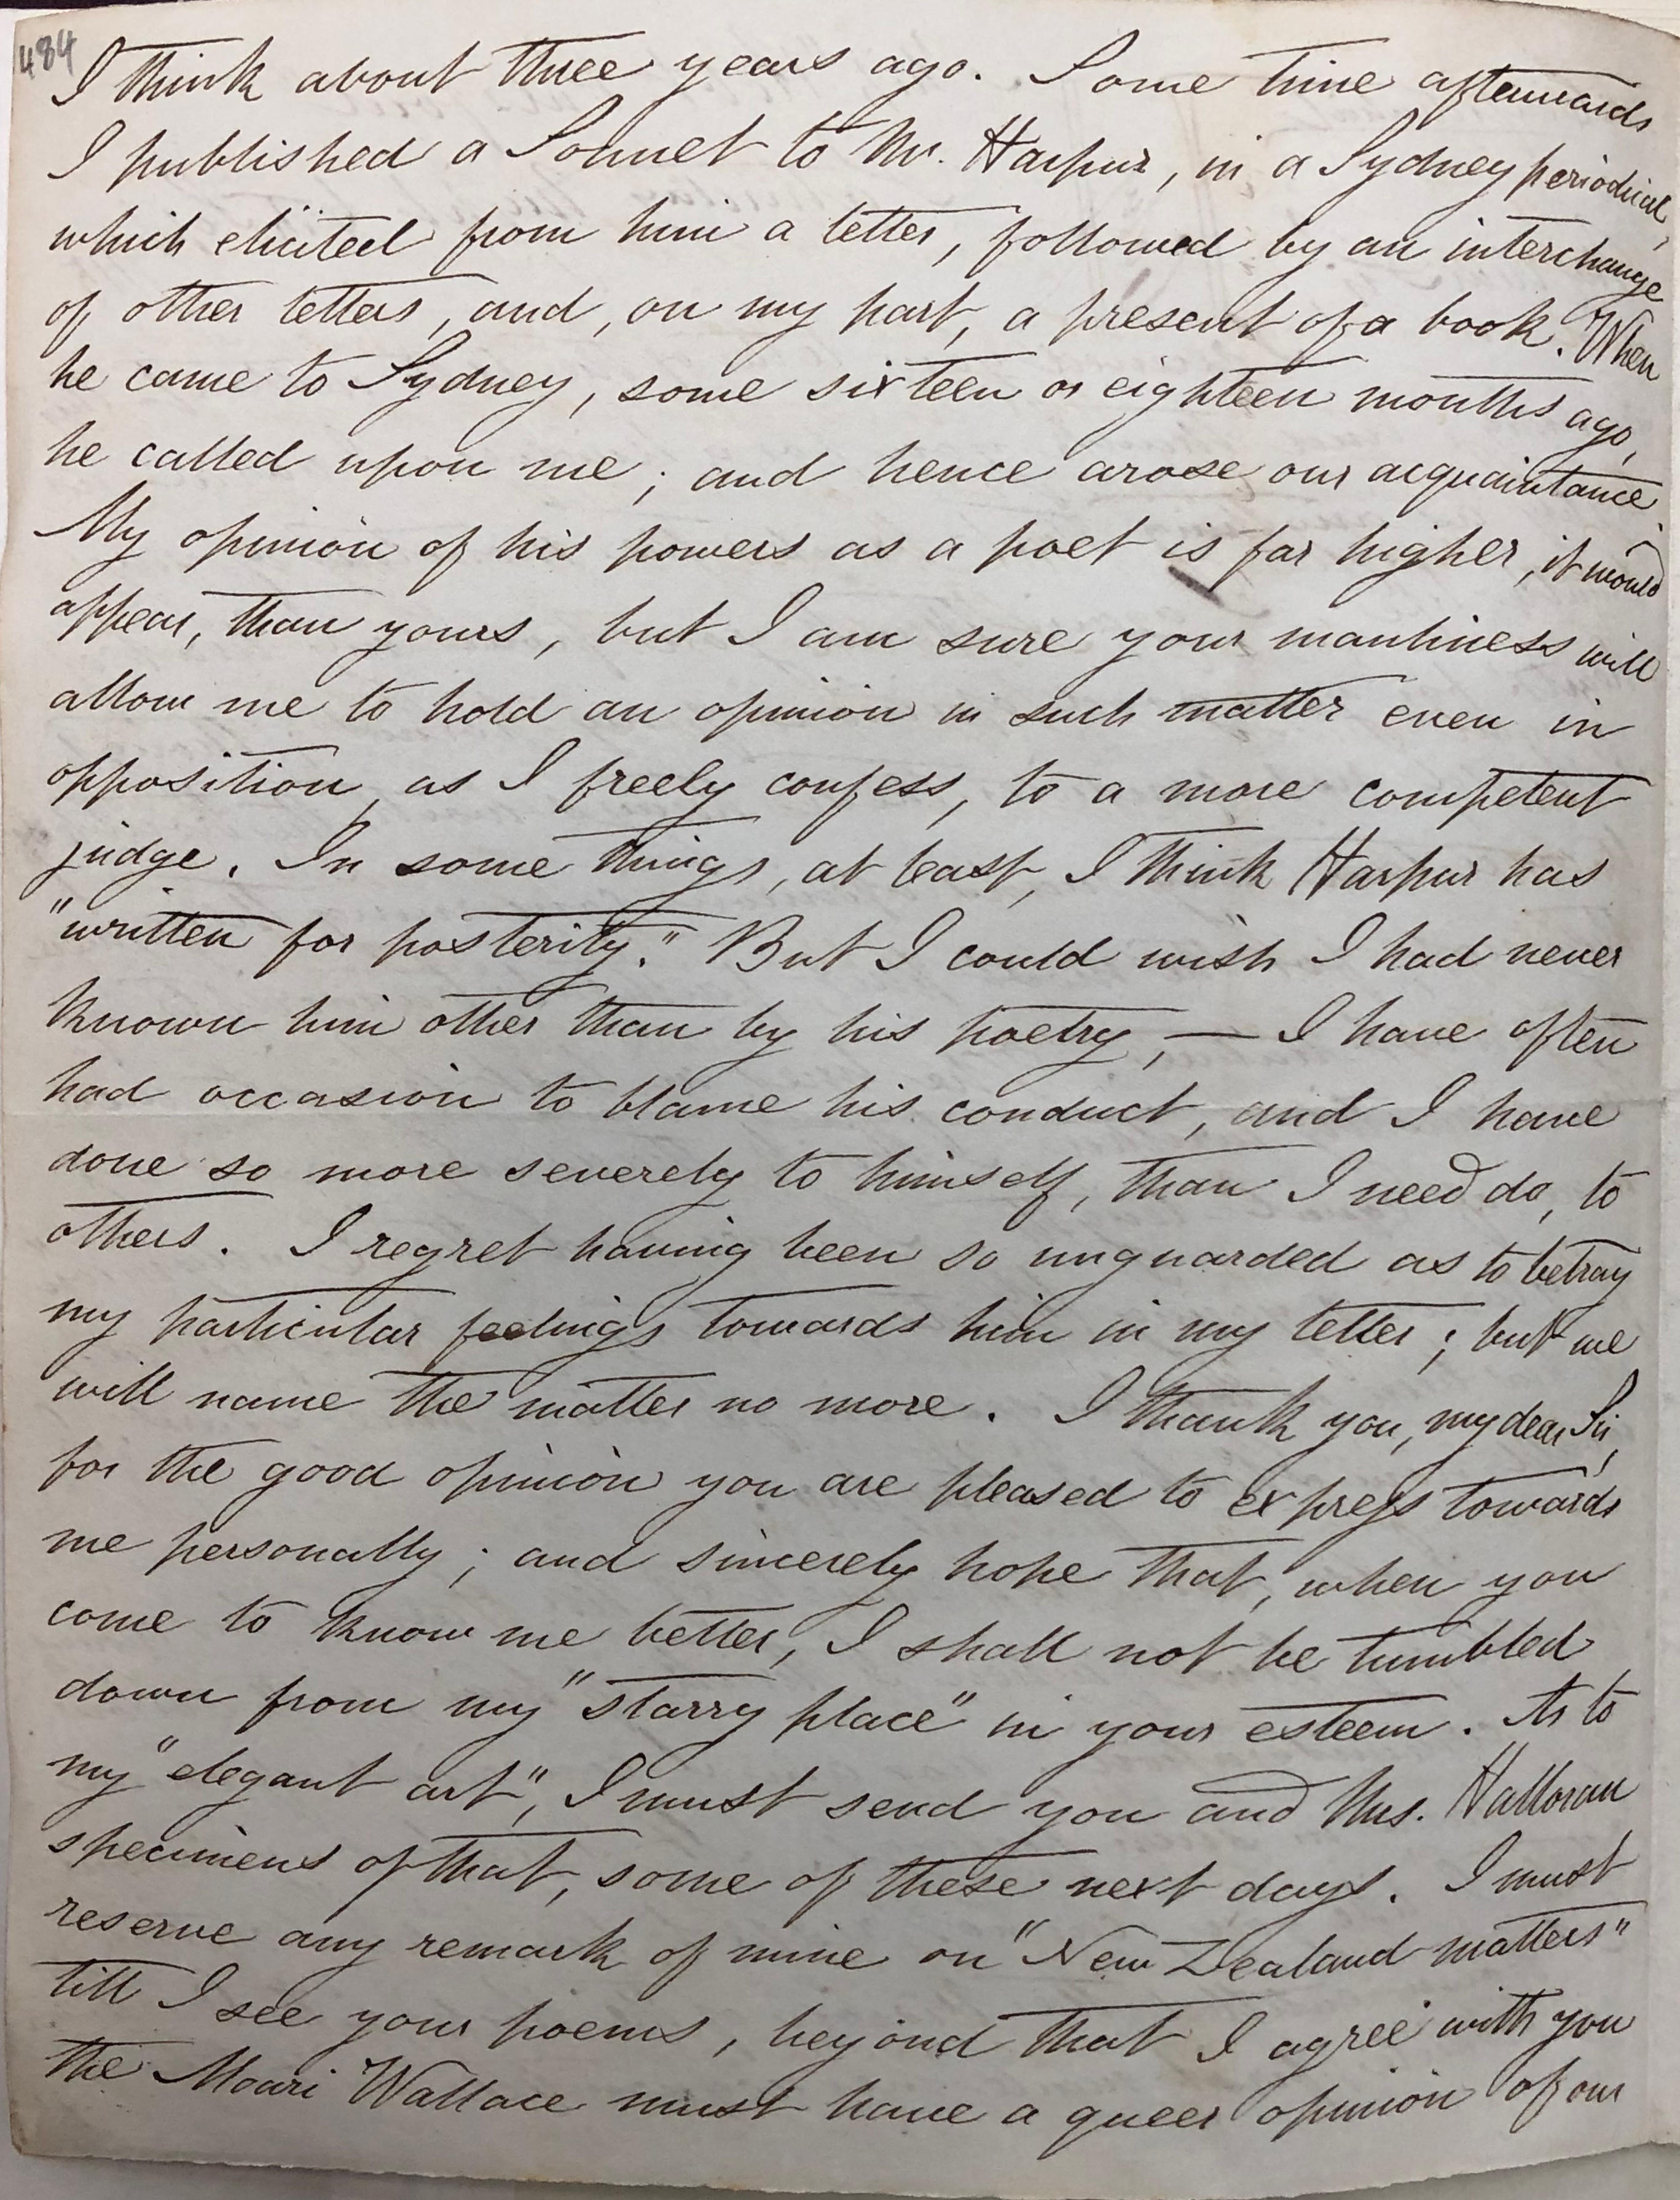 484
I think about three years ago. Some time afterwards
I published a Sonnet to Mr. Harpur, in a Sydney periodical,
which elicited from him a letter, followed by an interchange
of other letters, and, on my part, a present of a book. When
he came to Sydney, some sixteen or eighteen months ago,
he called upon me; and hence arose our acquaintance.
My opinion of his powers as a poet is far higher, it would
appear, than yours, but I am sure your manliness will
allow me to hold an opinion in such matter even in
opposition, as I freely confess, to a more competent
judge. In some things, at least, I think Harpur has
"written for posterity." But I could wish I had never
known him other than by his poetry, — I have often
had occasion to blame his conduct, and I have
done so more severely to himself, than I need do, to
others. I regret having been so unguarded as to betray
my particular feelings towards him in my letter; but we
will name the matter no more. I thank you, my dear Sir,
for the good opinion you are pleased to express towards
me personally; and sincerely hope that, when you
come to know me better, I shall not be tumbled
down from my "starry place" in your esteem. As to
my "elegant art", I must send you and Mrs. Halloran
specimens of that, some of these next days. I must
reserve any remark of mine on "New Zealand matters"
till I see your poems, beyond that I agree with you
the Moari Wallace must have a queer opinion of our